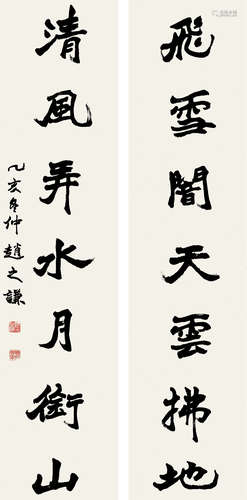 飛雪闇天雲拂地
清風弄水月銜山
乙亥冬仲趙之謙